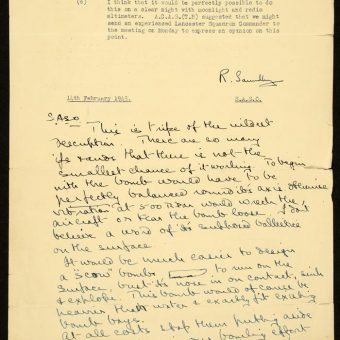 (c) I think that it would be perfectly possible to do
this on a clear night with moonlight and radio
altimeters. A.C.A.S.(T.R) suggested that we might
send an experienced Lancaster Squadron Commander to
the meeting on Monday to express an opinion on this
point.
R. Saundby
14th February 1943. S.A.S.O.
SASO
This is tripe of the wildest
description. There are so many
ifs & ands that there is not the
smallest chance of its working. To begin
with the bomb would have to be
perfectly balanced round its axis otherwise
vibration at 500 RPM would wreck the
aircraft or tear the bomb loose. I don't
believe a word of its supposed ballistics
on the surface.
It would be much easier to design
a "scow" bomb to run on the
surface, bust its nose in on contact, sink
& explode. This bomb would of course be
heavier than water & exactly fit existing
bomb bays.
At all costs stop them putting aside
our bombing effort